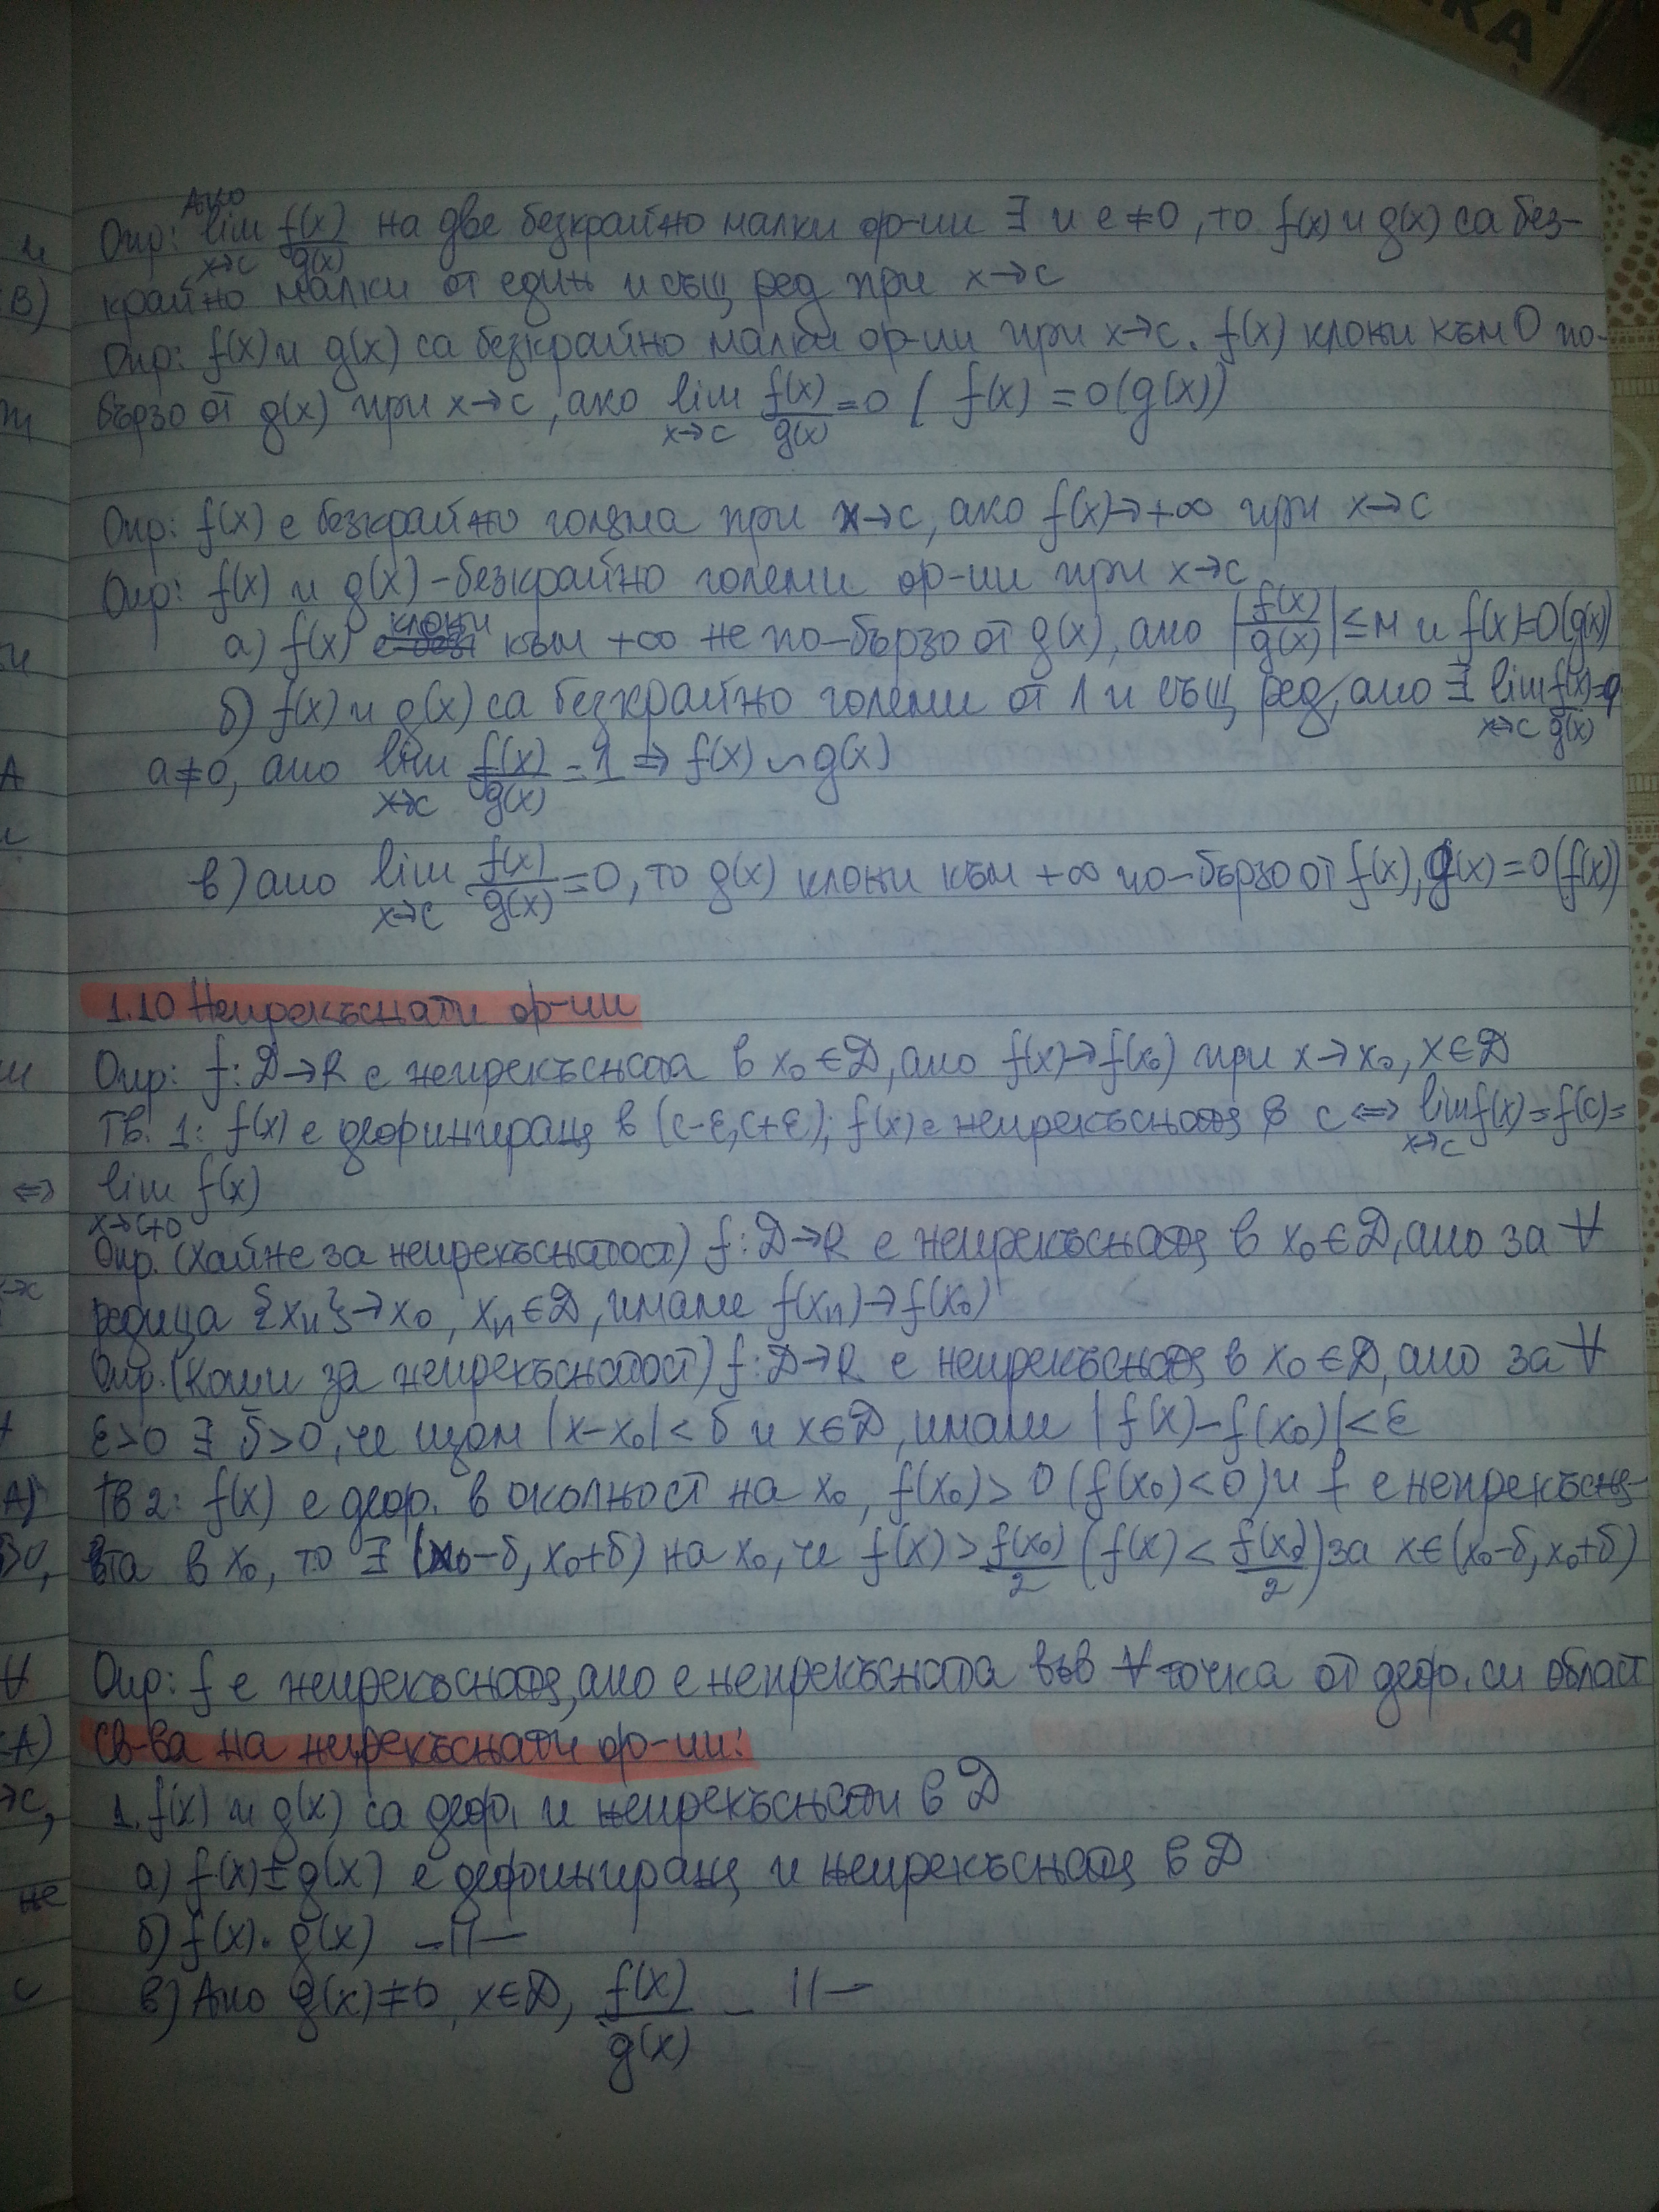 КА
Ако
Опр: lim x→c f(x)/g(x) на две безкрайно малки ф-ии ∃ и е ≠0, то f(x) и g(x) са без-
крайно малки от един и същ ред при x→c
Опр: f(x) и g(x) са безкрайно малки ф-ии при x→c. f(x) клони към 0 по-
бързо от g(x) при x→c, ако lim x→c f(x)/g(x) = 0 ( f(x) = o(g(x))
Опр: f(x) е безкрайно голяма при x→c, ако f(x)→+∞ при x→c
Опр: f(x) и g(x) - безкрайно големи ф-ии при x→c
а) f(x) клони към +∞ не по-бързо от g(x), ако |f(x)/g(x)| ≤ M и f(x)=O(g(x))
б) f(x) и g(x) са безкрайно големи от 1 и същ ред, ако ∃ lim x→c f(x)/g(x) = a
a≠0, ако lim x→c f(x)/g(x) = 1 ⇒ f(x) ∽ g(x)
в) ако lim x→c f(x)/g(x) = 0, то g(x) клони към +∞ по-бързо от f(x), g(x) = o(f(x))
1.10 Непрекъснати ф-ии
Опр: f: D→R е непрекъсната в x₀∈D, ако f(x)→f(x₀) при x→x₀, x∈D
Тв. 1: f(x) е дефинирана в (c-ε, c+ε); f(x) е непрекъсната в c ⇔ lim x→c f(x) = f(c) =
lim x→c+0 f(x)
Опр. (Хайне за непрекъснатост) f: D→R е непрекъсната в x₀∈D, ако за ∀
редица {xₙ}→x₀, xₙ∈D, имаме f(xₙ)→f(x₀)
Опр. (Коши за непрекъснатост) f: D→R е непрекъсната в x₀∈D, ако за ∀
ε>0 ∃ δ>0, че щом |x-x₀|<δ и x∈D, имаме |f(x)-f(x₀)|<ε
Тв 2: f(x) е деф. в околност на x₀, f(x₀)>0 (f(x₀)<0) и f е непрекъсна-
та в x₀, то ∃ (x₀-δ, x₀+δ) на x₀, че f(x) > f(x₀)/2 (f(x) < f(x₀)/2) за x∈(x₀-δ, x₀+δ)
Опр: f е непрекъсната, ако е непрекъсната във ∀ точка от деф. си област
Св-ва на непрекъснати ф-ии:
1. f(x) и g(x) са деф. и непрекъснати в D
а) f(x)±g(x) е дефинирана и непрекъсната в D
б) f(x)·g(x) –II–
в) Ако g(x)≠0, x∈D, f(x)/g(x) –II–